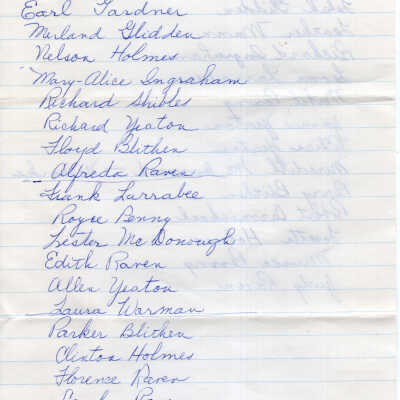 Earl Gardner
Merland Glidden
Nelson Holmes
Mary-Alice Ingraham
Richard Shibles
Richard Yeaton
Floyd Blithen
Alfreda Raven
Frank Larrabee
Royce Benny
Lester McDonough
Edith Raven
Allen Yeaton
Laura Warman
Parker Blithen
Clinton Holmes
Florence Raven